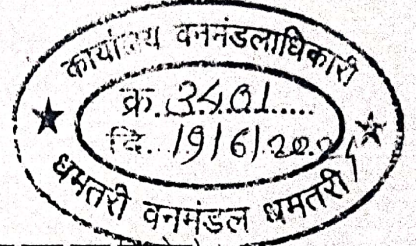 कार्यालय वनमंडलाधिकारी
क्र. 3401......
दि. 19/6/202
धमतरी वनमंडल धमतरी